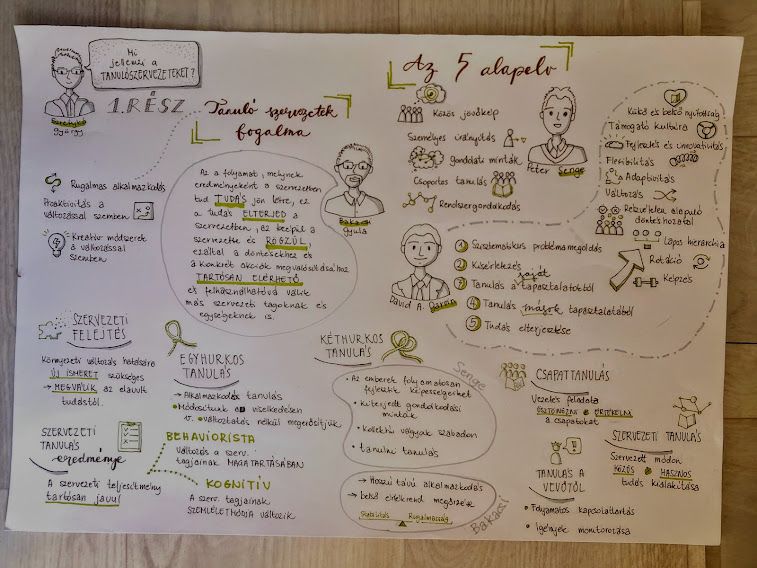 Mi
jellemzi a
TANULÓSZERVEZETEKET?
1. RÉSZ
György
Tanuló szervezetek
fogalma
Rugalmas alkalmazkodás
Proaktivitás a
változással szemben
Kreatív módszerek
a változással
szemben
Az a folyamat, melynek
eredményeként a szervezetben
TUDÁS jön létre, ez
a tudás ELTERJED a
szervezetben, ez beépül a
szervezetbe és RÖGZÜL,
ezáltal a döntésekhez és
a konkrét akciók megvalósításához
TARTÓSAN ELÉRHETŐ
és felhasználhatóvá válik
más szervezeti tagoknak és
egységeknek is.
Bakacsi
Gyula
Az 5 alapelv
Közös jövőkép
Személyes irányítás
Gondolati minták
Csoportos tanulás
Rendszergondolkodás
Peter Senge
Külső és belső nyitottság
Támogató kultúra
Fejlesztés és innovativitás
Flexibilitás
Adaptivitás
Változás
Részvételen alapuló
döntéshozatal
Lapos hierarchia
Rotáció
Képzés
David A. Garvin
1 Szisztematikus problémamegoldás
2 Kísérletezés
3 Tanulás a saját tapasztalatokból
4 Tanulás mások tapasztalatából
5 Tudás elterjesztése
SZERVEZETI
FELEJTÉS
Környezeti változás hatására
ÚJ ISMERET szükséges
→ MEGVÁLIK az elavult
tudástól.
EGYHURKOS
TANULÁS
→ Alkalmazkodás tanulás
Módosítunk a viselkedésen
v. változtatás nélkül megerősítjük
KÉTHURKOS
TANULÁS
Senge
• Az emberek folyamatosan
fejlesztik képességeiket
• kiterjedt gondolkodási
minták
• kollektív vágyak szabadon
• tanulni tanulás
→ Hosszú távú alkalmazkodás
→ belső értékrend megőrzése
Stabilitás Rugalmasság
Bakacsi
CSAPATTANULÁS
Vezetés feladata
ÖSZTÖNÖZNI ÉRTÉKELNI
a csapatokat
SZERVEZETI TANULÁS
Szervezett módon
KÖZÖS HASZNOS
tudás kialakítása
TANULÁS A
VEVŐTŐL
• Folyamatos kapcsolattartás
• Igények monitorozása
SZERVEZETI
TANULÁS
eredménye
A szervezeti teljesítmény
tartósan javul
BEHAVIORISTA
Változás a szerv.
tagjainak MAGATARTÁSÁBAN
KOGNITÍV
A szerv. tagjainak
SZEMLÉLETMÓDJA változik